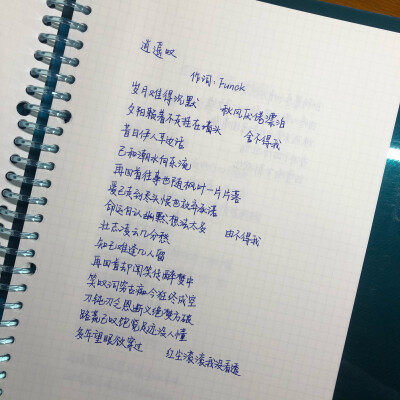 逍遥叹
作词：Funck
岁月难得沉默 秋风厌倦漂泊
夕阳赖着不走挂在墙头 舍不得我
昔日伊人耳边话
已和潮水向东流
再回首往事也随枫叶一片片落
爱已走到末头恨也放弃承诺
命运自认幽默想法太多 由不得我
壮志凌云几分愁
知己难逢几人留
再回首却闻笑传醉梦中
笑叹词穷古痴今狂终成空
刀钝刃乏恩断义绝梦方破
路荒已叹饱览足迹没人懂
多年望眼欲穿过 红尘滚滚我没看透